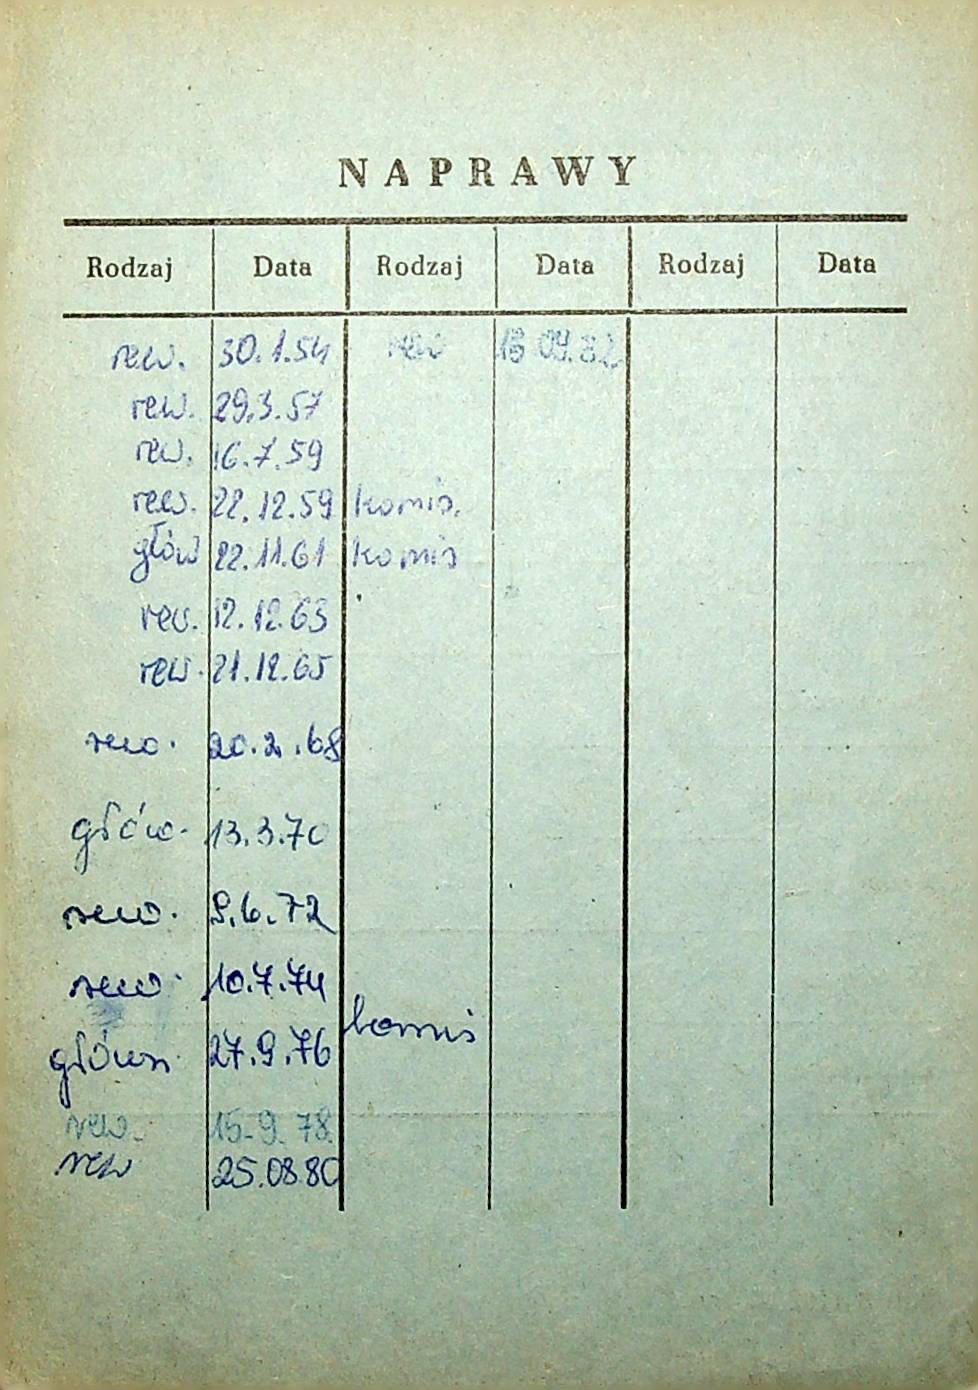 NAPRAWY
Rodzaj Data Rodzaj Data Rodzaj Data
rew. 30.1.54 rew 13 09.82
rew. 29.3.57
rew. 16.7.59
rew. 22.12.59 komis.
głów 22.11.61 komis
rew. 12.12.63
rew. 21.12.65
rew. 20.2.68
głów. 13.3.70
rew. 9.6.72
rew. 10.7.74
komis
główn. 27.9.76
rew. 15.9.78
rew 25.08.80